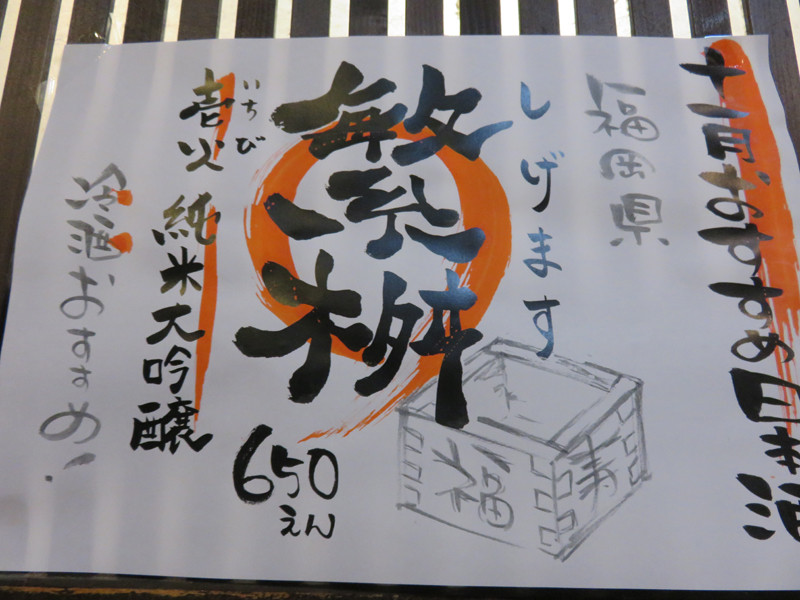 十一月おすすめ日本酒
福岡県
しげます
繁桝
いちび
壱火 純米大吟醸
650
えん
冷酒おすすめ!
福
寿